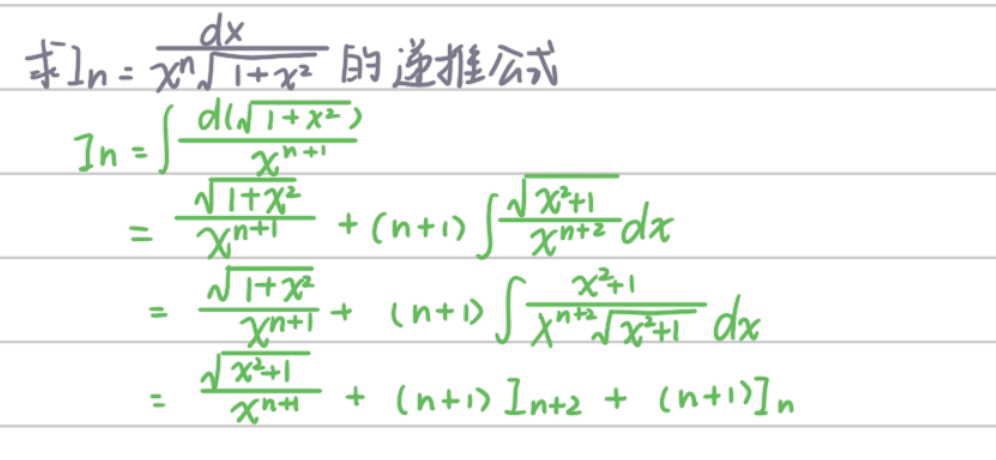 求 Iₙ = dx / (xⁿ√(1+x²)) 的递推公式
Iₙ = ∫ d(√(1+x²)) / xⁿ⁺¹
= √(1+x²) / xⁿ⁺¹ + (n+1) ∫ √(x²+1) / xⁿ⁺² dx
= √(1+x²) / xⁿ⁺¹ + (n+1) ∫ (x²+1) / (xⁿ⁺²√(x²+1)) dx
= √(x²+1) / xⁿ⁺¹ + (n+1) Iₙ₊₂ + (n+1) Iₙ